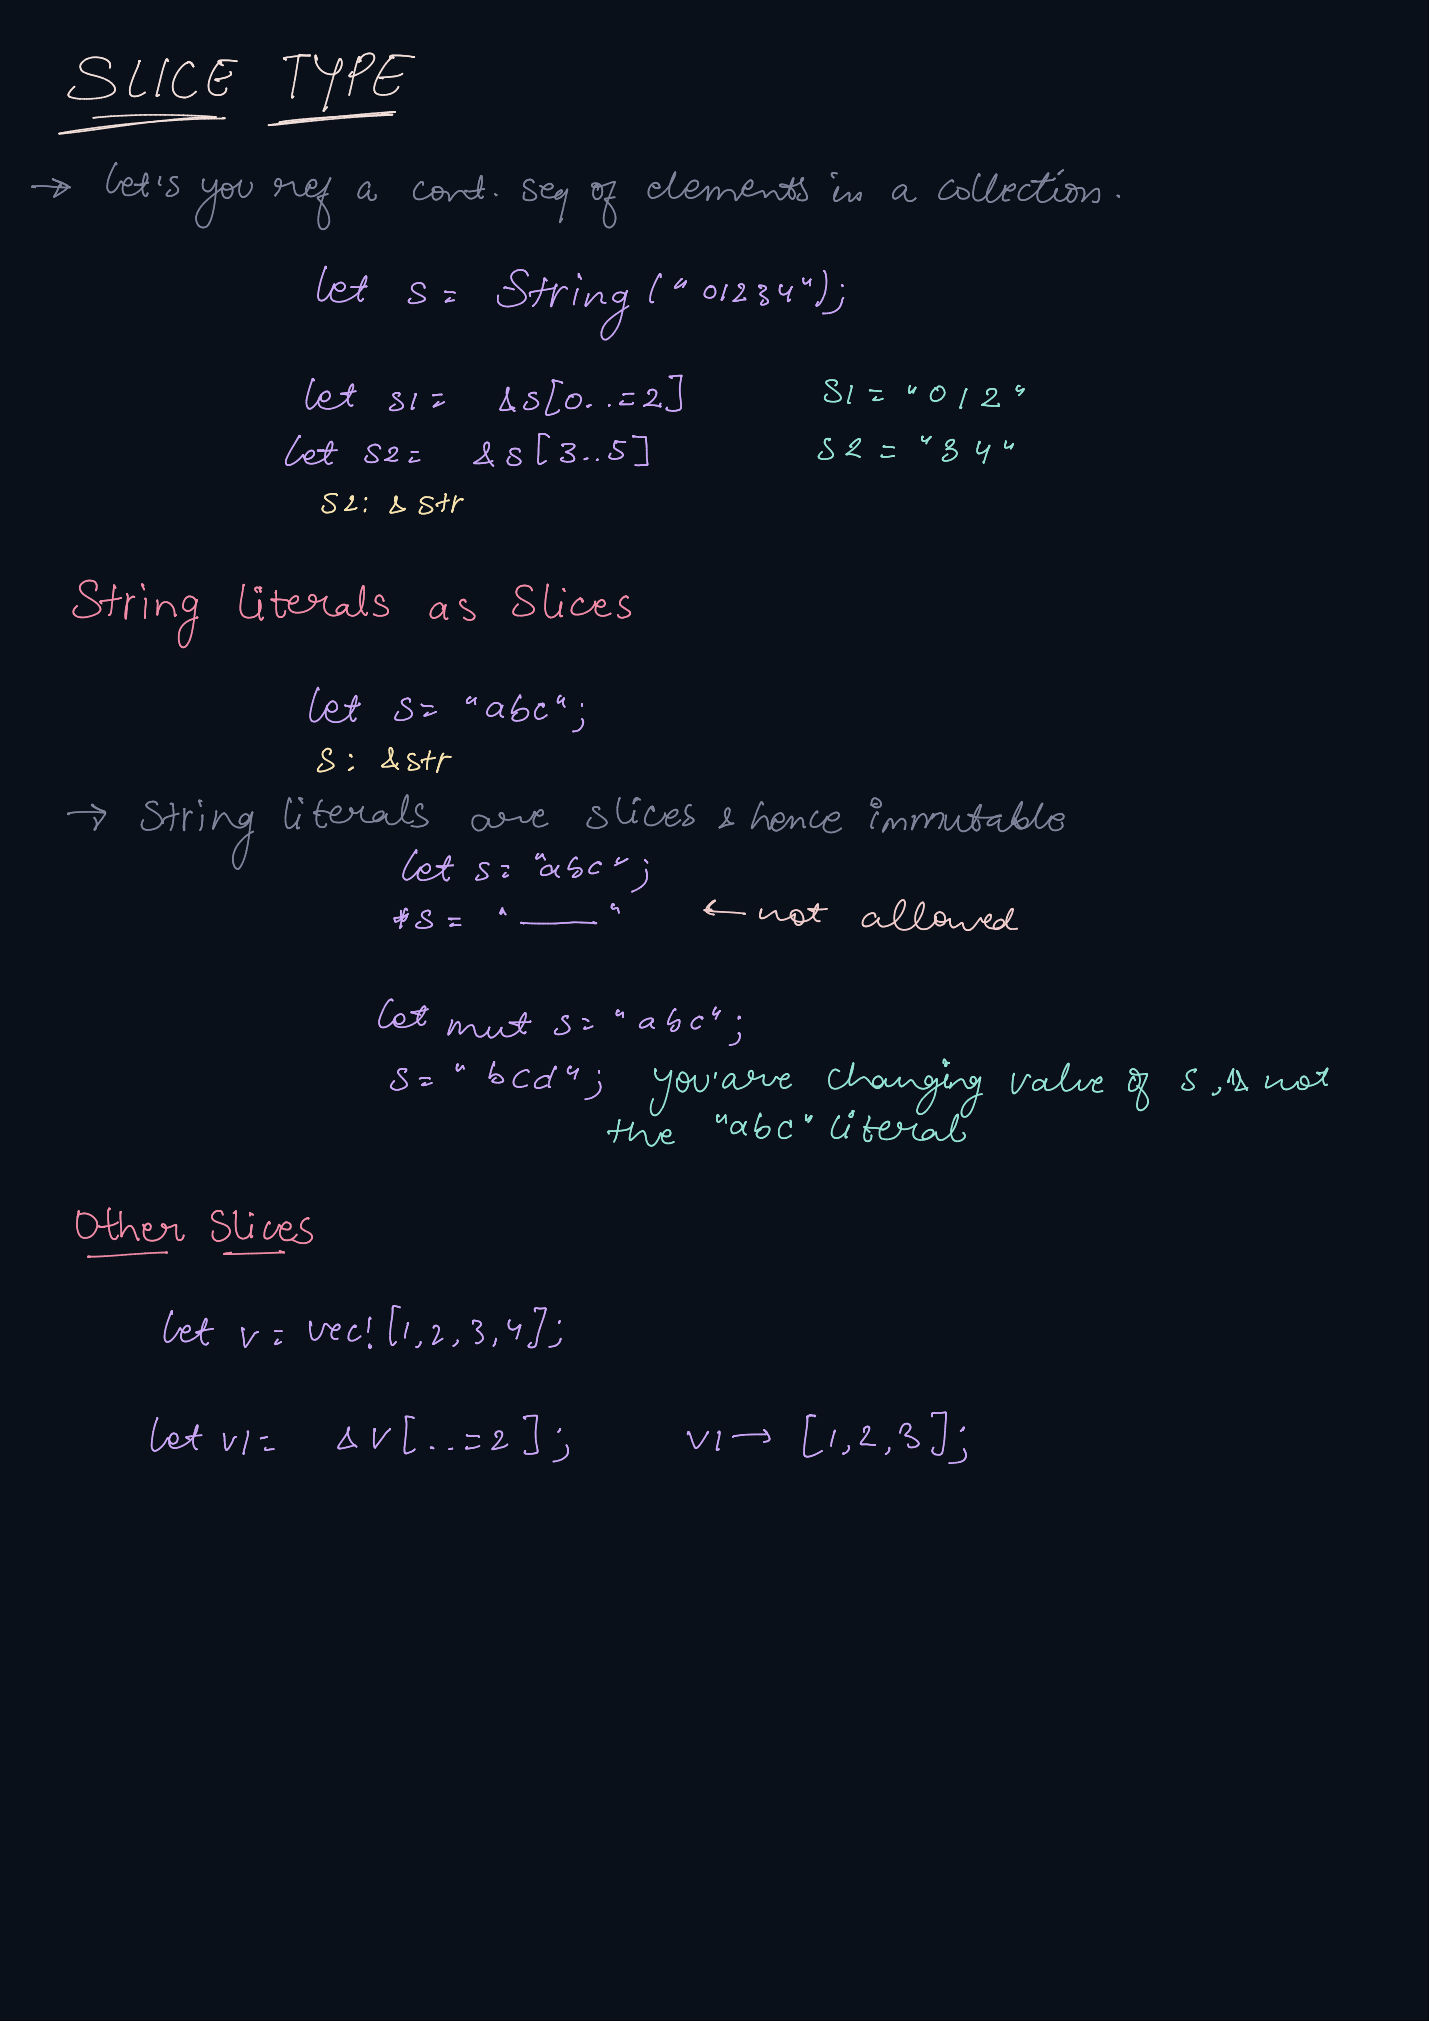 SLICE TYPE
→ Let's you ref a cont. seq of elements in a collection.
let s = String("01234");
let s1 = &s[0..=2] S1 = "012"
let s2 = &s[3..5] S2 = "34"
S2: &str
String literals as Slices
let s = "abc";
s: &str
→ String literals are slices & hence immutable
let s = "abc";
*s = "____" ← not allowed
let mut s = "abc";
s = "bcd"; you'are changing value of s, & not
the "abc" literal
Other Slices
let v = vec![1,2,3,4];
let v1 = &v[..=2]; v1 → [1,2,3];